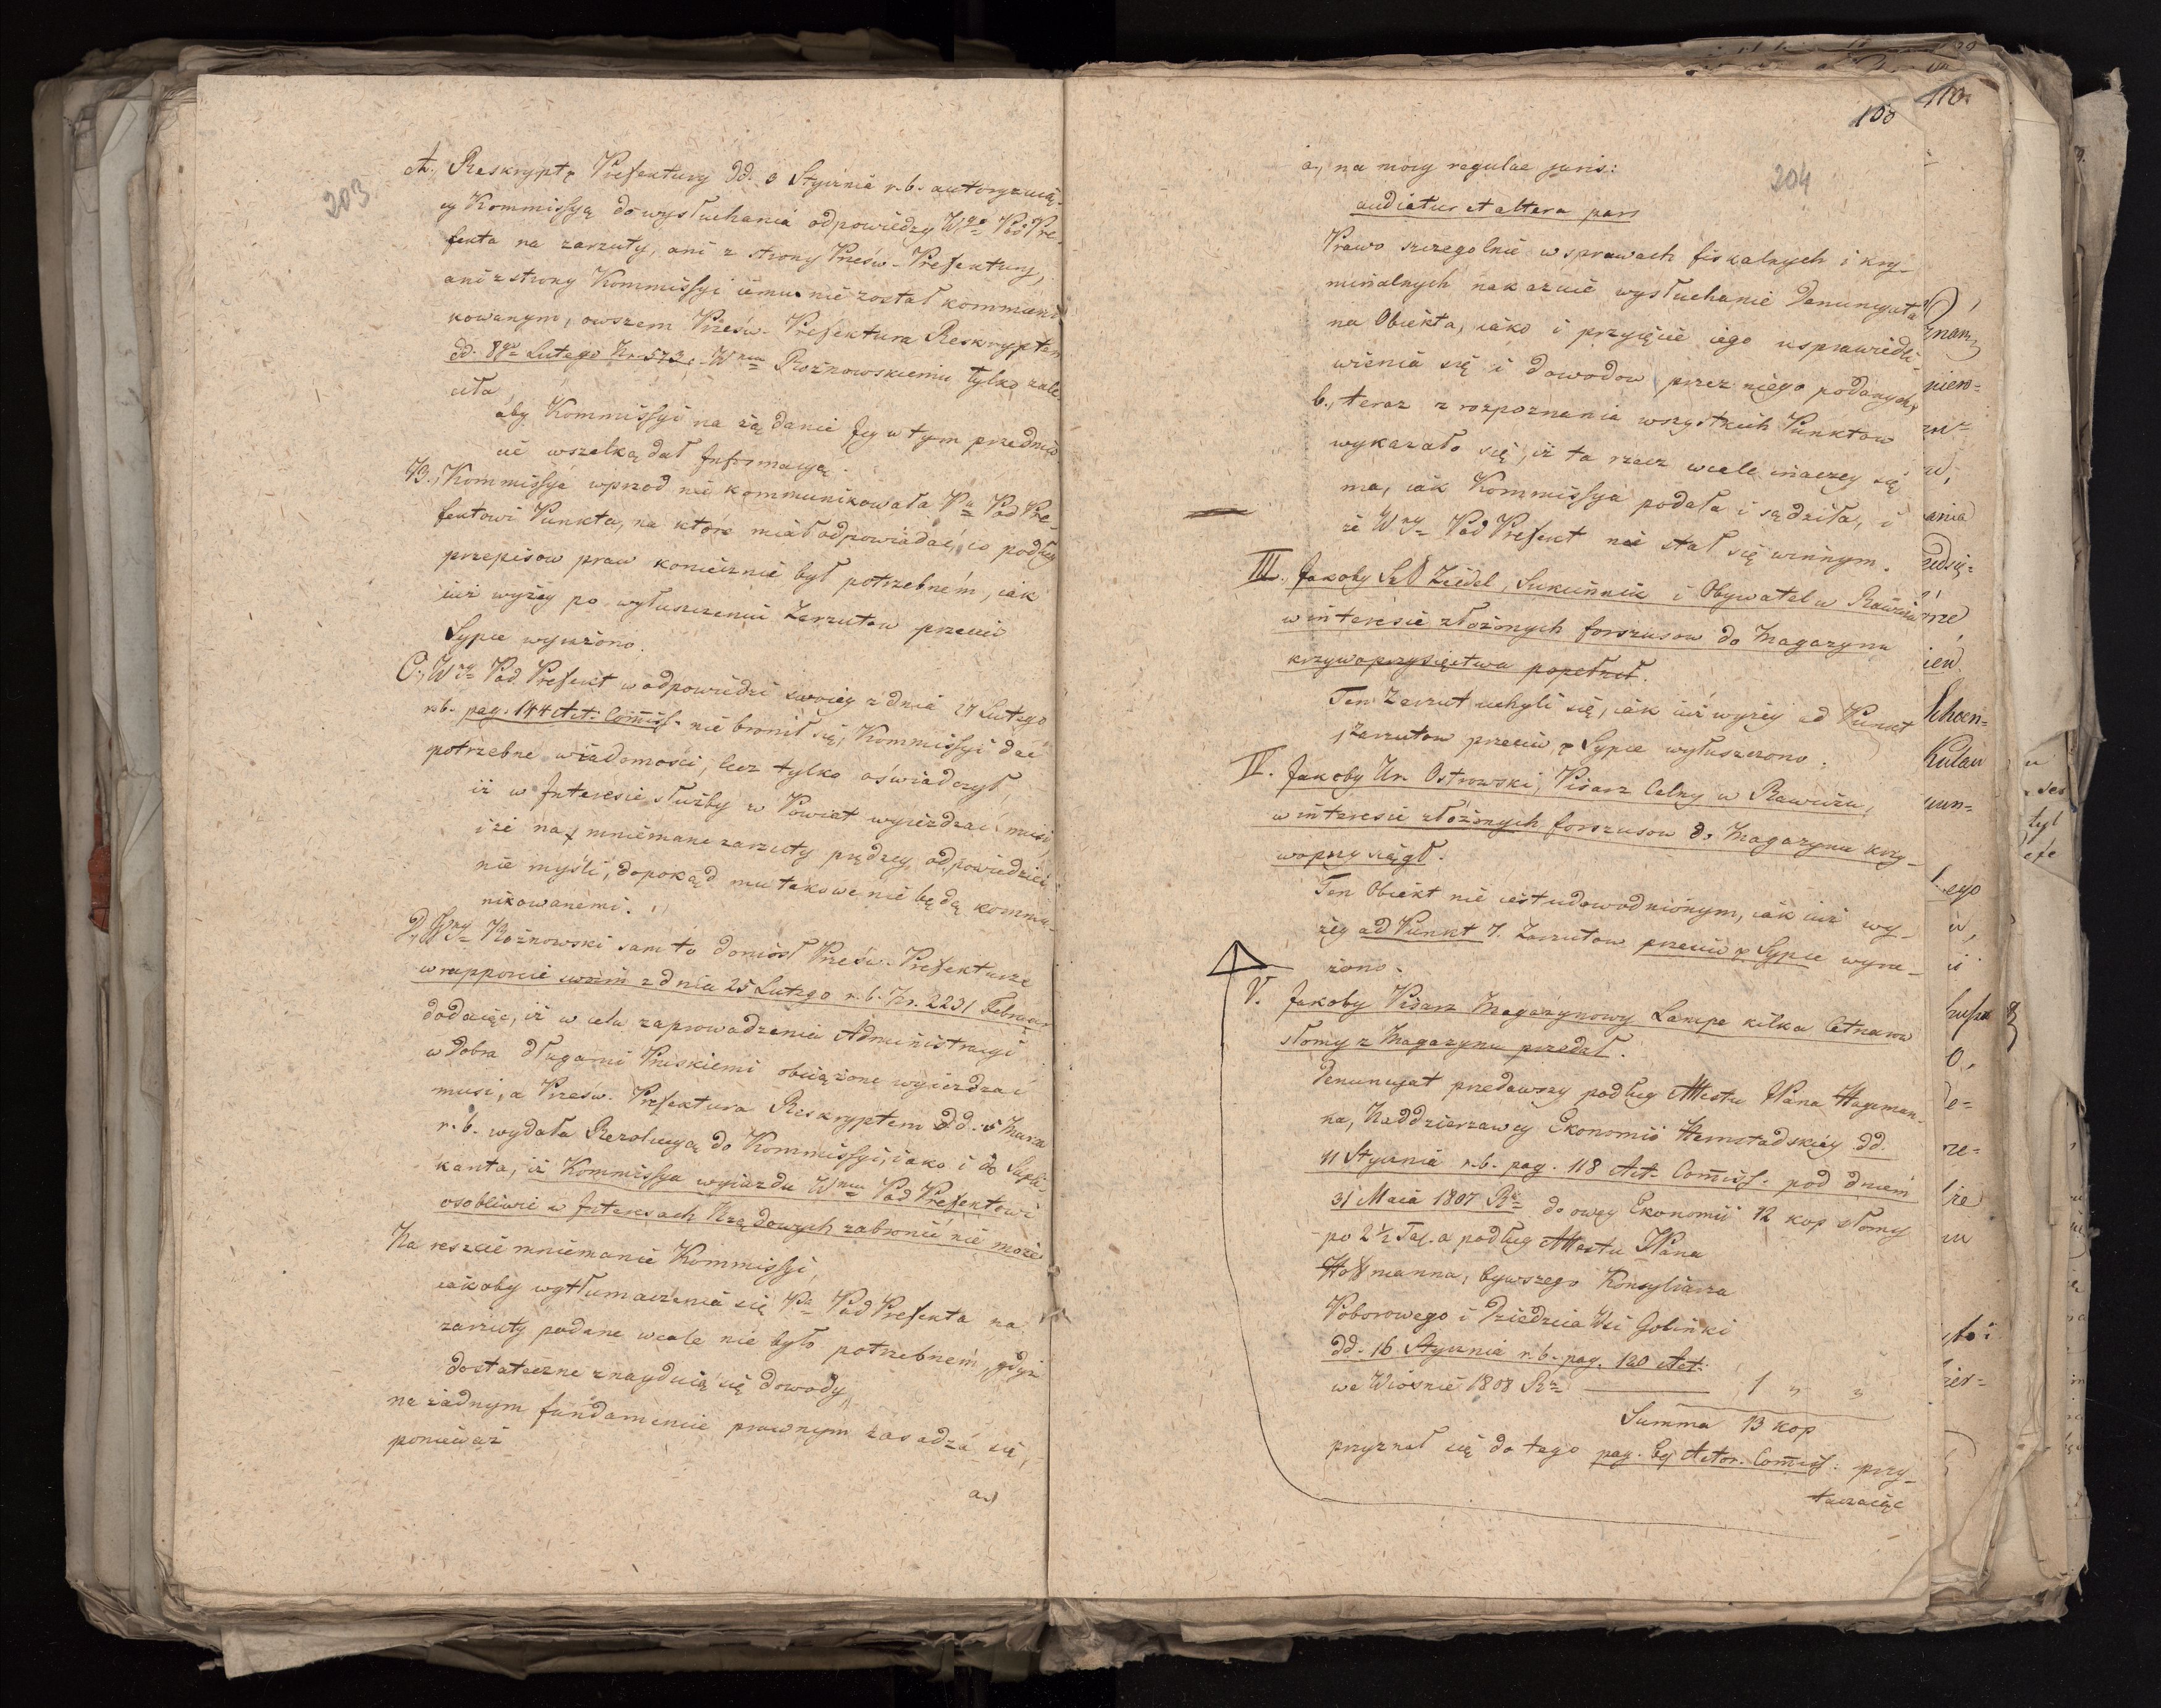 203
A., Reskrypt Prefektury dd. 3 Stycznia r.b. autoryzuią-
cy Kommissyą do wysłuchania odpowiedzy Wgo Pod Pre-
fekta na zarzuty, ani z strony Prześw. Prefektury,
ani z strony Kommissyi iemu nie został kommuni-
kowanym, owszem Prześw. Prefektura Reskryptem
dd. 8go Lutego Nr. 573. Wmu Rożnowskiemu tylko zale-
ciła
aby Kommissyi na żądanie Jey w tym przedmio-
cie wszelką dał Informacyą.
B., Kommissya wprzod nie kommunikowała Pu Pod Pre-
fektowi Punkta, na ktore miał odpowiadać, co podług
przepisow praw koniecznie był potrzebném, iak
iuż wyżey po wyłuszczeniu Zarzutow przeciw
Sypce wyrażono.
C., Wny Pod Prefekt w odpowiedzi swoiey z dnia 24 Lutego
r.b. pag. 144 Act. Commiss. nie bronił się, Kommissyi dać
potrzebne wiadomości, lecz tylko oświadczył,
iż w Interesie służby w Powiat wyieżdzać musi,
i że na mniemane zarzuty prędzey odpowiedzieć
nie myśli, dopokąd mu takowe nie będą kommu-
nikowanemi.
D., Wny Rożnowski sam to doniósł Prześw. Prefekturze
w rapporcie swoim z dnia 25 Lutego r.b. Nr. 2231 Februar
dodaiąc, iż w celu zaprowadzenia Administracyi
w dobra długami Pruskiemi obciążone wyieżdzać
musi, a Prześw. Prefektura Reskryptem dd. 5 Marca
r.b. wydała Rezolucyą do Kommissyi, iako i do Supli-
kanta, iż Kommissya wyiazdu Wmu Pod Prefektowi
osobliwie w Interesach Rządowych zabronić nie może
Na reszcie mniemanie Kommissyi,
iakoby wytłumaczenia się Pa Pod Prefekta na
zarzuty podane wcale nie było potrzebnem, gdyż
dostateczne znayduią się dowody,
na żadnym fundamencie prawnym zasadza się,
ponieważ
a.)
100
110
204
a, na mocy regulae juris:
audiatur et altera pars
Prawo szczegolnie w sprawach fiskalnych i kry-
minalnych nakazuie wysłuchanie Denuncyata
na Obiekta, iako i przyięcie iego usprawiedli-
wienia się i dowodow przez niego podanych,
b., teraz z rozpoznania wszystkich Punktow
wykazało się, iż ta rzecz wcale inaczey się
ma, iak Kommissya podała i sądziła, i
że Wny Pod Prefekt nie stał się winnym.
III., Jakoby Zeidel, Sukiennik i Obywatel w Rawiczu
w interesie złożonych forszusow do Magazynu
krzywoprzysięztwa popełnił.
Ten Zarzut uchyli się, iak iuż wyżey ad Punkt
Zarzutow przeciw Sypce wyłuszczono.
IV. Jakoby Ur. Ostrowski, Pisarz Celny w Rawiczu,
w interesie złożonych forszusow do Magazynu krzy-
woprzysiągł.
Ten Obiekt nie iest udowodnionym, iak iuż wy-
żey ad Punkt 7. Zarzutow przeciw Sypce wyra-
żono.
V. Jakoby Pisarz Magazynowy Lampe kilka Cetnarow
słomy z Magazynu przedał.
Denuncyat przedawszy podług Attestu Pana Hageman-
na, Naddzierzawcy Ekonomii Hernstadskiey dd.
11 Stycznia r.b. pag. 118 Act. Commiss. pod dniem
31 Maia 1807 Rku do owey Ekonomii 12 kop słomy
po 2½ Tal. a podług Attestu Pana
Hoffmanna, bywszego Konsyliarza
Poborowego i Dziedzica Wsi Golinki
dd. 16 Stycznia r.b. pag. 120 Act.
we Wiośnie 1808 Rku 1 " "
Summa 13 kop
przyznał się do tego pag. 69 Actor. Commiss. przy-
taczaiąc